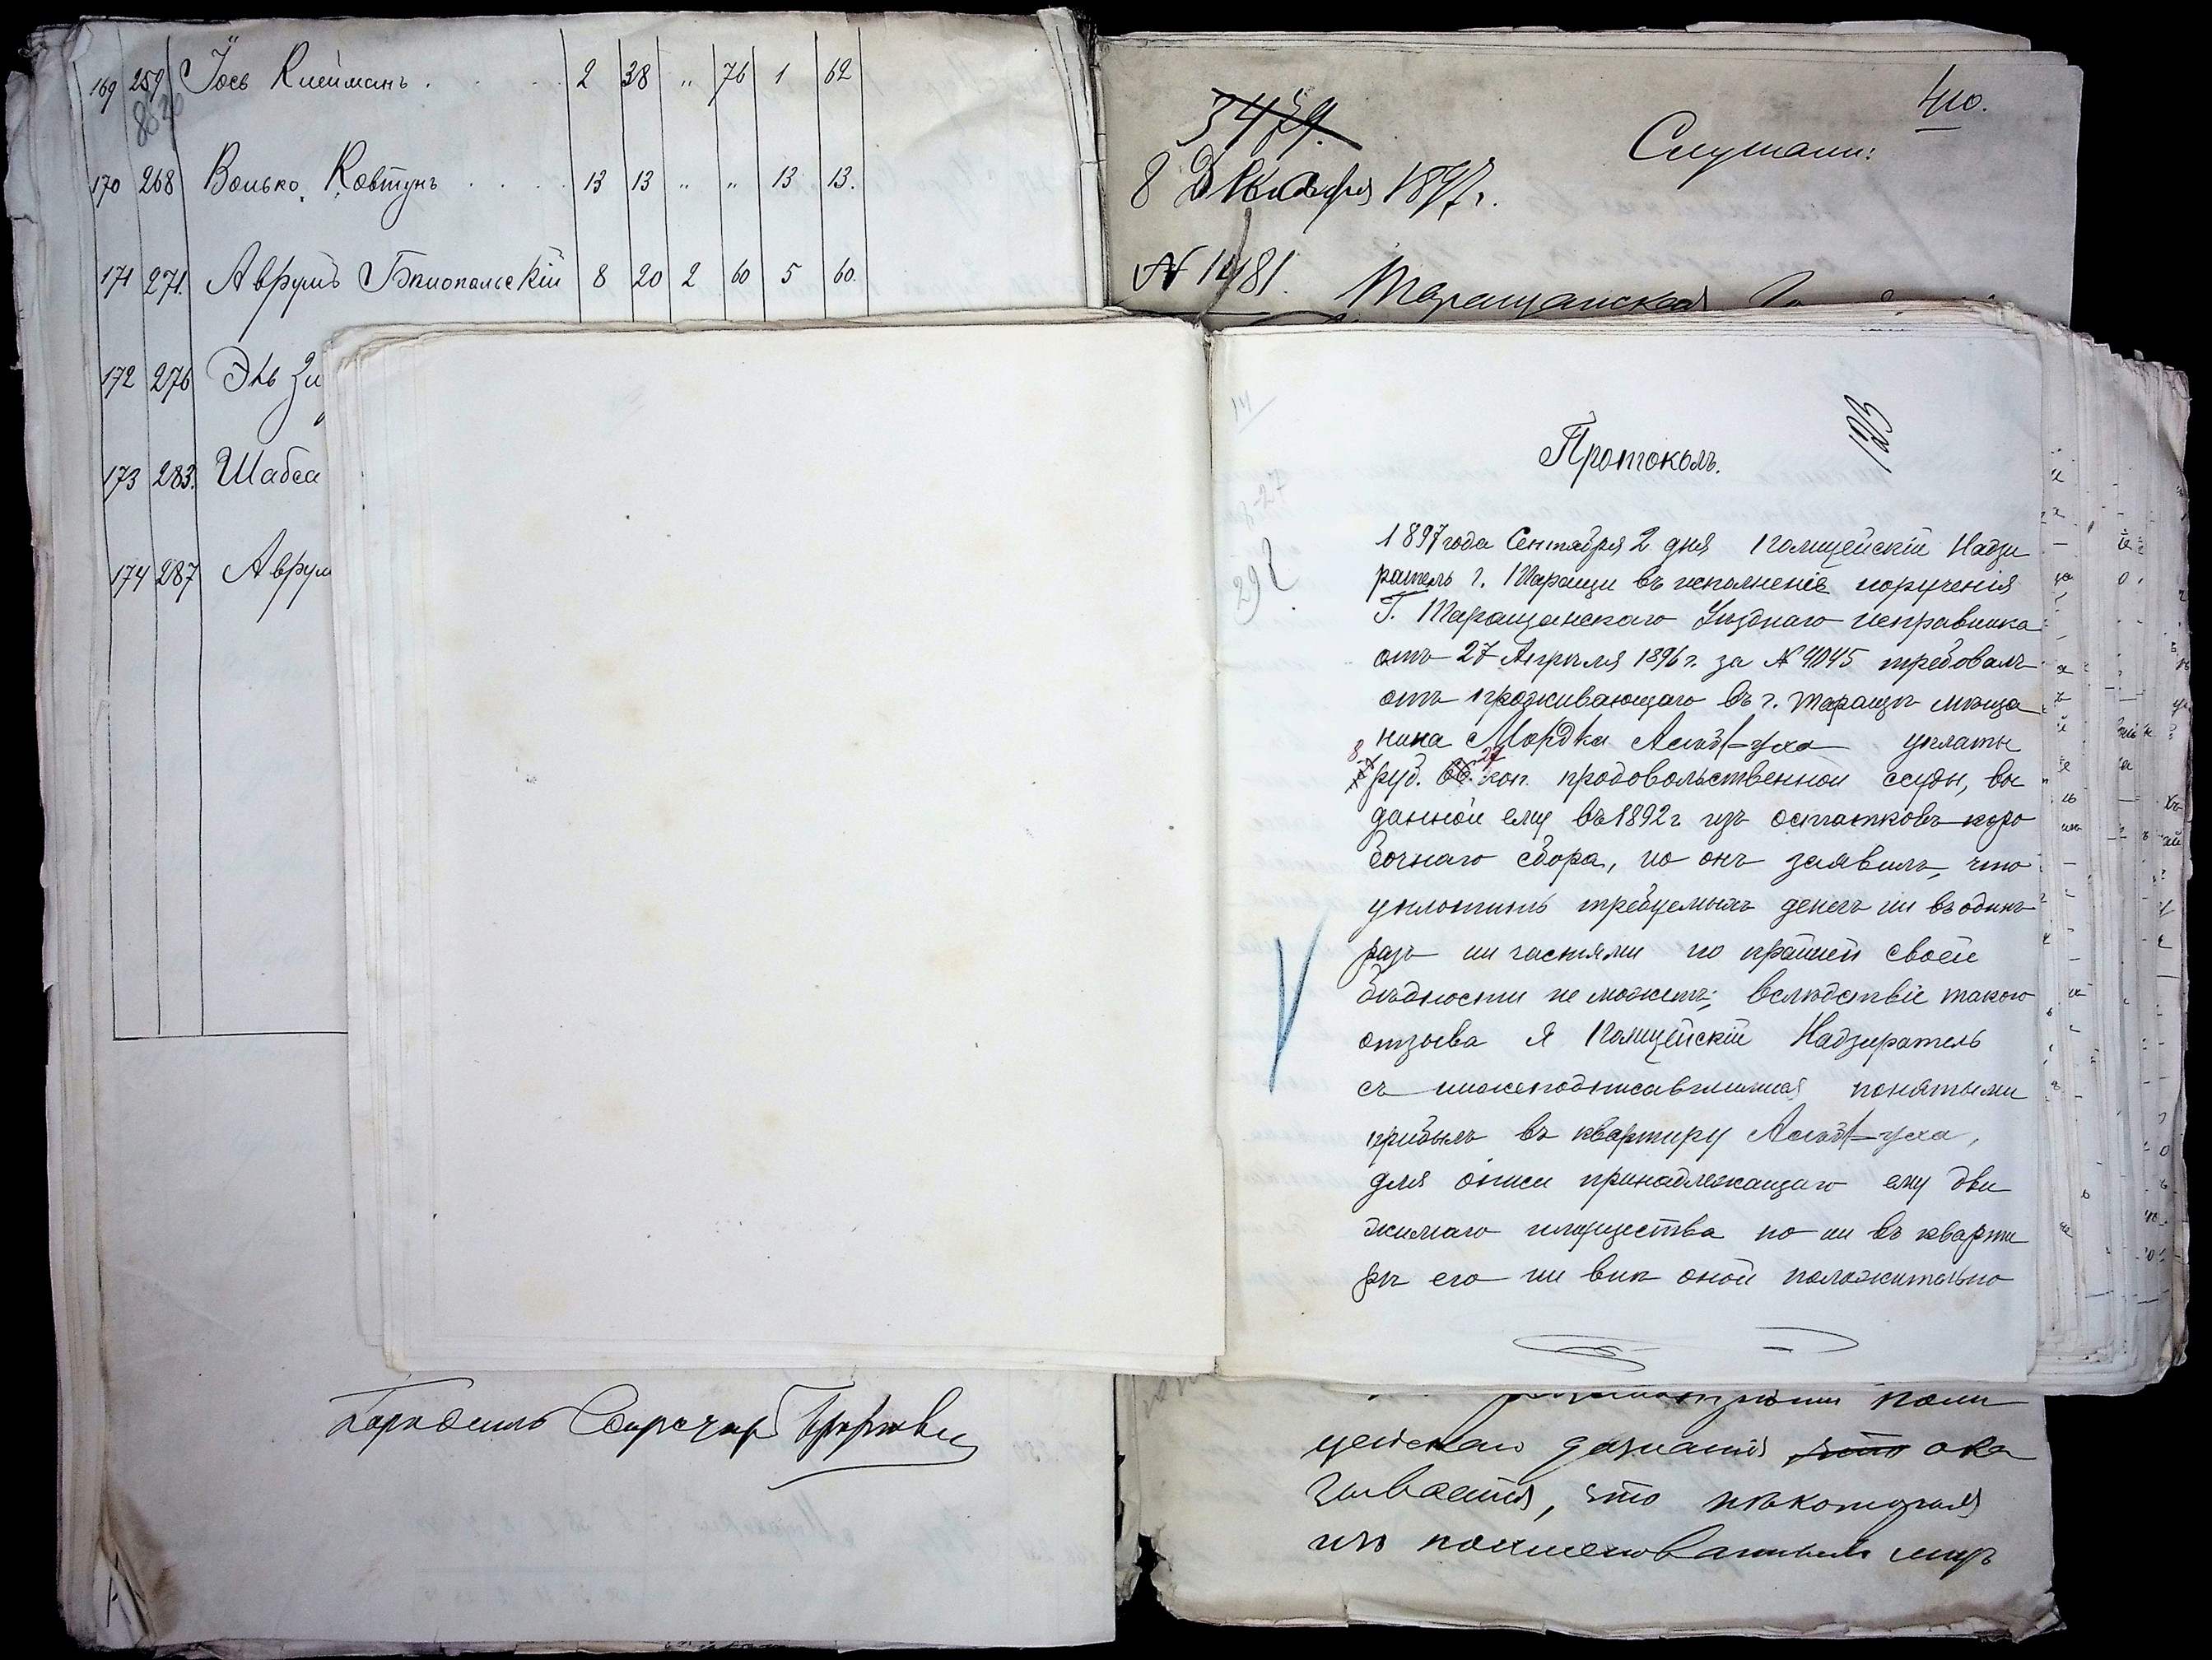 169 259 Іось Клейманъ . 2 38 " 76 1 62
170 268 Волько Ковтунъ . . . 13 13 " " 13 13.
171 271. Аврумъ Бѣлопольскій 8 20 2 60 5 60.
172 276 Эль
173 283. Шабса
174 287 Аврум
410.
3479.
Слушали:
8 Декабря 1897 г.
№ 1481. Таращанская
14
123
Протоколъ.
1897 года Сентября 2 дня Полицейскій Надзи
ратель г. Таращи въ исполненіе порученія
Г. Таращанскаго Уѣзднаго Исправника
отъ 27 Апрѣля 1896 г. за № 4045 требовалъ
отъ проживающаго въ г. Таращѣ мѣща
нина Мордка уплаты
8 руб. 27 коп. продовольственной ссуды, вы
данной ему въ 1892 г изъ остатковъ коро
бочнаго сбора, но онъ заявилъ, что
уплотить требуемыхъ денегъ ни въ одинъ
разъ ни частями по крайней своей
бѣдности не можетъ; вслѣдствіе такого
отзыва я Полицейскій Надзиратель
съ нижеподписавшимися понятыми
прибылъ въ квартиру
для описи принадлежащаго ему дви
жимаго имущества но ни въ кварти
рѣ его ни внѣ оной положительно
поли
цейскаго дознанія что ока
зывается, что нѣкоторыя
изъ поименованныхъ лицъ